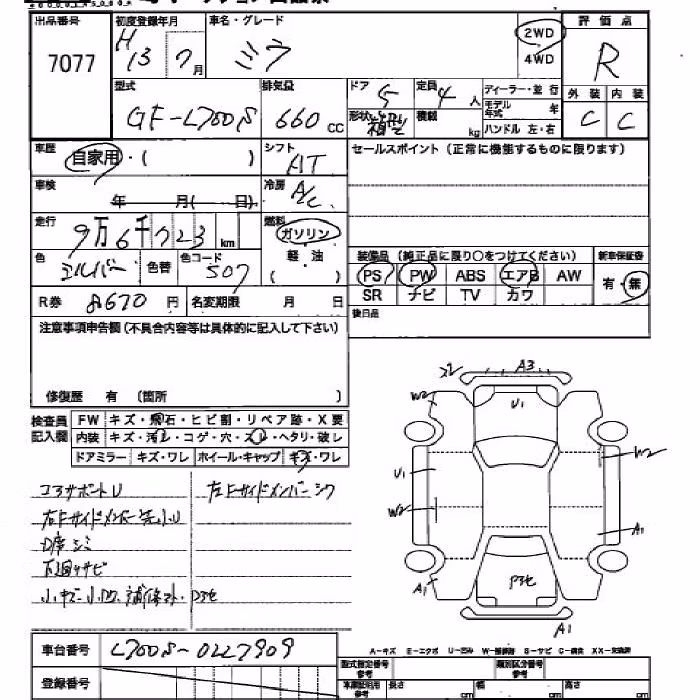 出品番号
7077
初度登録年月
H 13 7月
車名・グレード
ミラ
2WD
4WD
評価点
R
外装 内装
C C
型式
GF-L700S
排気量
660 cc
ドア 5
定員 4人
形状 箱型
積載 kg
ディーラー・並行
モデル年式 年
ハンドル 左・右
車歴
自家用・( )
シフト
AT
セールスポイント(正常に機能するものに限ります)
車検
年 月( 日)
冷房
A/C
走行
9万6千723 km
燃料
ガソリン
軽・油
( )
色
シルバー
色替
色コード
S07
装備品(純正品に限り○をつけてください) 新車保証書
PS PW ABS エアB AW
SR ナビ TV カワ
有・無
R券 8670 円
名変期限 月 日
後日品
注意事項申告欄(不具合内容等は具体的に記入して下さい)
修復歴 有 (箇所 )
検査員記入欄
FW キズ・飛石・ヒビ割・リペア跡・X要
内装 キズ・汚レ・コゲ・穴・スレ・ヘタリ・破レ
ドアミラー キズ・ワレ ホイール・キャップ キズ・ワレ
コアサポートU
左Fサイドメンバーシワ
右Fサイドメンバー先小U
D席シミ
下廻りサビ
小キズ・小凹
P3セ
A3
W2
U1
U1
W2
W2
A1
A1
P3セ
A1
A-キズ E-エクボ U-凹み W-補修跡 S-サビ C-腐食 XX-交換済
車台番号
L700S-0227909
登録番号
型式指定番号 参考
類別区分番号 参考
車庫証明用 参考
長さ cm
幅 cm
高さ cm